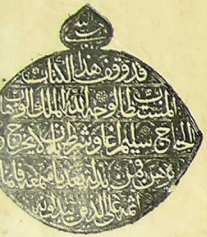 قد وقف هذا الكتاب
المستطاب لوجه الله الملك الوهاب
الحاج سليم اغا وشرط ان لا يخرج
فمن بدله بعد ما سمعه فانما
اثمه على الذين يبدلونه